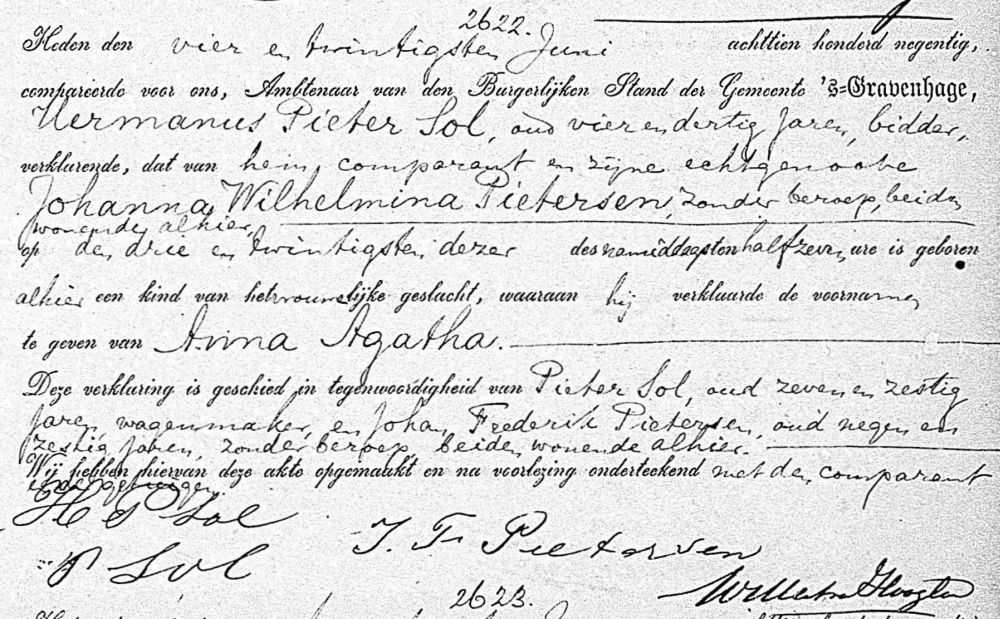 2622.
Heden den vier en twintigsten Juni achttien honderd negentig,
compareerde voor ons, Ambtenaar van den Burgerlijken Stand der Gemeente 's=Gravenhage,
Hermanus Pieter Sol, oud vier en dertig jaren, bidder,
verklarende, dat van hem, comparant en zijne echtgenoote
Johanna Wilhelmina Pietersen, zonder beroep, beiden
wonende alhier,
op den drie en twintigsten dezer des namiddags ten half zeven ure is geboren
alhier een kind van het vrouwelijke geslacht, waaraan hij verklaarde de voornamen
te geven van Anna Agatha.
Deze verklaring is geschied in tegenwoordigheid van Pieter Sol, oud zeven en zestig
jaren, wagenmaker, en Johan Frederik Pietersen, oud negen en
zestig jaren, zonder beroep, beiden wonende alhier.
Wij hebben hiervan deze akte opgemaakt en na voorlezing onderteekend met den comparant
en de getuigen.
H P Sol
J. F. Pietersen
P Sol
2623.